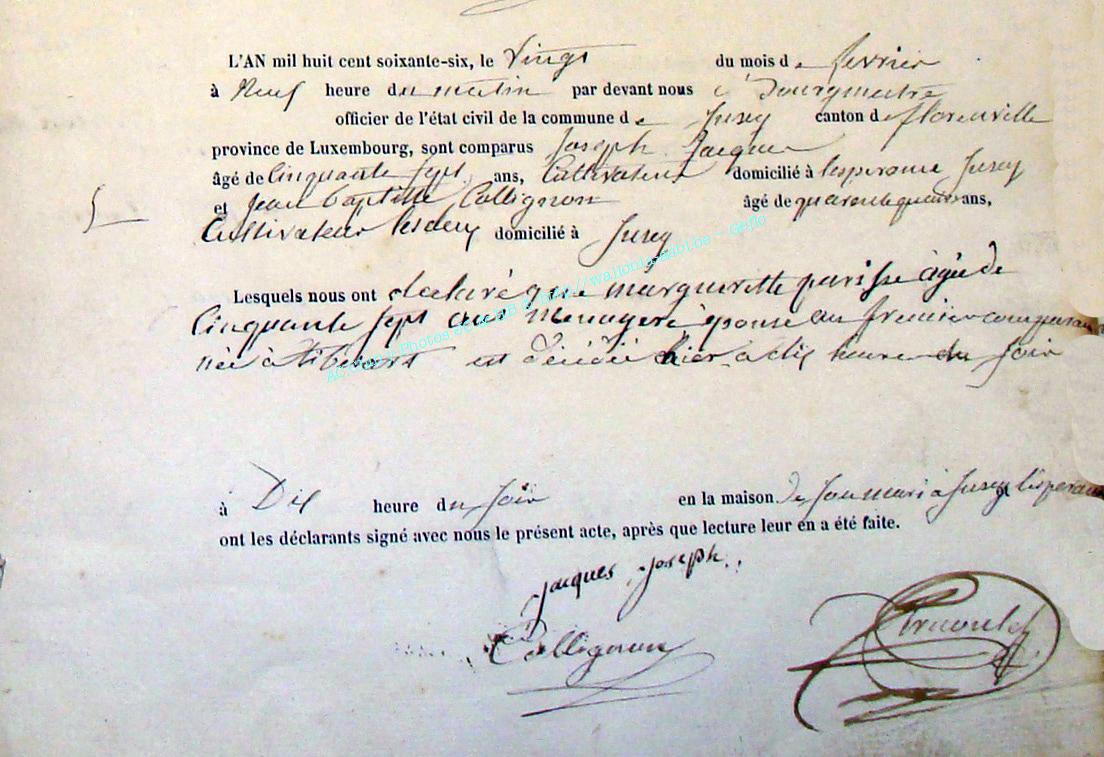 L'AN mil huit cent soixante-six, le Vingt du mois de fevrier
à Neuf heure du matin par devant nous Bourgmestre
officier de l'état civil de la commune de Jusey canton de florenville
province de Luxembourg, sont comparus Joseph Jacques
âgé de Cinquante Sept ans, Cultivateur domicilié à Jusey
et Jean baptiste Collignon âgé de ans,
Cultivateur domicilié à Jusey
Lesquels nous ont declaré que marguerette parisse agée de
Cinquante Sept ans Menagere épouse au premier comparan
née à est Décédé hier a dix heure du soir
à Dix heure du soir en la maison de son mari à Jusey
ont les déclarants signé avec nous le présent acte, après que lecture leur en a été faite.
Jacques Joseph
Collignon